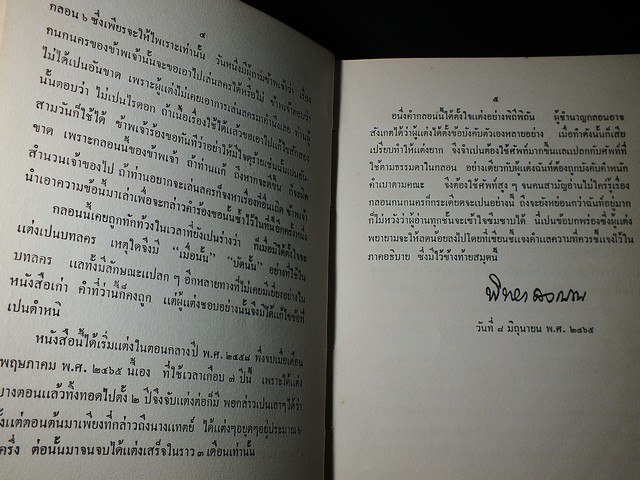 ๔
กลอน ๖ ซึ่งเพียรจะให้ไพเราะเท่านั้น วันหนึ่งมีผู้ถามข้าพเจ้าว่า เรื่อง
กนกนครของข้าพเจ้านั้นจะขอเอาไปเล่นลครได้หรือไม่ ข้าพเจ้าตอบว่า
ไม่ได้เป็นอันขาด เพราะผู้แต่งไม่เคยเอาการเล่นลครมาคำนึงเลย ท่านผู้
นั้นตอบว่า ไม่เป็นไรดอก ถ้าเนื้อเรื่องใช้ได้แล้วขอเอาไปแก้ไขสักสอง
สามวันก็ใช้ได้ ข้าพเจ้าร้องขอทันทีว่าอย่าให้มีใจดุร้ายเช่นนั้นเป็นอัน
ขาด เพราะกลอนนี้ของข้าพเจ้า ถ้าท่านแก้ ถึงหากจะดีขึ้น ก็จะผิด
สำนวนเจ้าของไป ถ้าท่านอยากจะเล่นลครก็จงหาเรื่องที่อื่นเถิด ข้าพเจ้า
นำเอาความข้อนั้นมาเล่าเพื่อจะกล่าวคำร้องขอนั้นซ้ำไว้ในที่นี้อีกครั้งหนึ่ง
กลอนนี้เคยถูกทักท้วงในเวลาที่ยังเป็นร่างว่า เมื่อมิได้ตั้งใจจะ
แต่งเป็นบทลคร เหตุใดจึงมี “เมื่อนั้น” “บัดนั้น” อย่างที่ใช้ใน
บทลคร แลทั้งมีลักษณะแปลก ๆ อีกหลายทางที่ไม่เคยมีเยี่ยงอย่างใน
หนังสือเก่า คำที่ว่านี้ก็คงถูก แต่ผู้แต่งชอบอย่างนั้นจึงมิได้แก้ไขข้อที่
เป็นตำหนิ
หนังสือนี้ได้เริ่มแต่งในตอนกลางปี พ.ศ. ๒๔๕๘ พึ่งจบเมื่อเดือน
พฤษภาคม พ.ศ. ๒๔๖๕ นี้เอง ที่ใช้เวลาเกือบ ๗ ปีนี้ เพราะได้แต่ง
บางตอนแล้วทิ้งทอดไปตั้ง ๒ ปีจึงจับแต่งต่อก็มี พอกล่าวเป็นเลาๆ ได้ว่า
ตั้งแต่ตอนต้นมาเพียงที่กล่าวถึงนางแทตย์ ได้แต่งๆอยุดๆอยู่ประมาณ ๖
ครึ่ง ต่อนั้นมาจนจบได้แต่งเสร็จในราว ๓ เดือนเท่านั้น
๕
อนึ่งคำกลอนนี้ได้ตั้งใจแต่งอย่างพิถีพิถัน ผู้ชำนาญกลอนอาจ
สังเกตได้ว่าผู้แต่งได้ตั้งข้อบังคับตัวเองหลายอย่าง เมื่อทำดังนั้นก็เสีย
เปรียบทำให้แต่งยาก จึงจำเป็นต้องใช้ศัพท์มากขึ้นแลแปลกกับศัพท์ที่
ใช้ตามธรรมดาในกลอน อย่างเดียวกับผู้แต่งฉันท์ที่ต้องถูกบังคับคำหนัก
คำเบาตามคณะ จึงต้องใช้ศัพท์สูง ๆ จนคนสามัญอ่านไม่ใคร่รู้เรื่อง
กลอนกนกนครก็กระเดียดจะเป็นอย่างนั้น ถึงจะยังหย่อนกว่าฉันท์อยู่มาก
ก็ไม่หวังว่าผู้อ่านทุกชั้นจะเข้าใจซึมซาบได้ นี่เป็นข้อบกพร่องซึ่งผู้แต่ง
พยายามจะให้ลดน้อยลงไปโดยที่เขียนชี้แจงคำแลความที่ควรชี้แจงไว้ใน
ภาคอธิบาย ซึ่งมีไว้ข้างท้ายสมุดนี้
พิทยาลงกรณ
วันที่ ๘ มิถุนายน พ.ศ. ๒๔๖๕